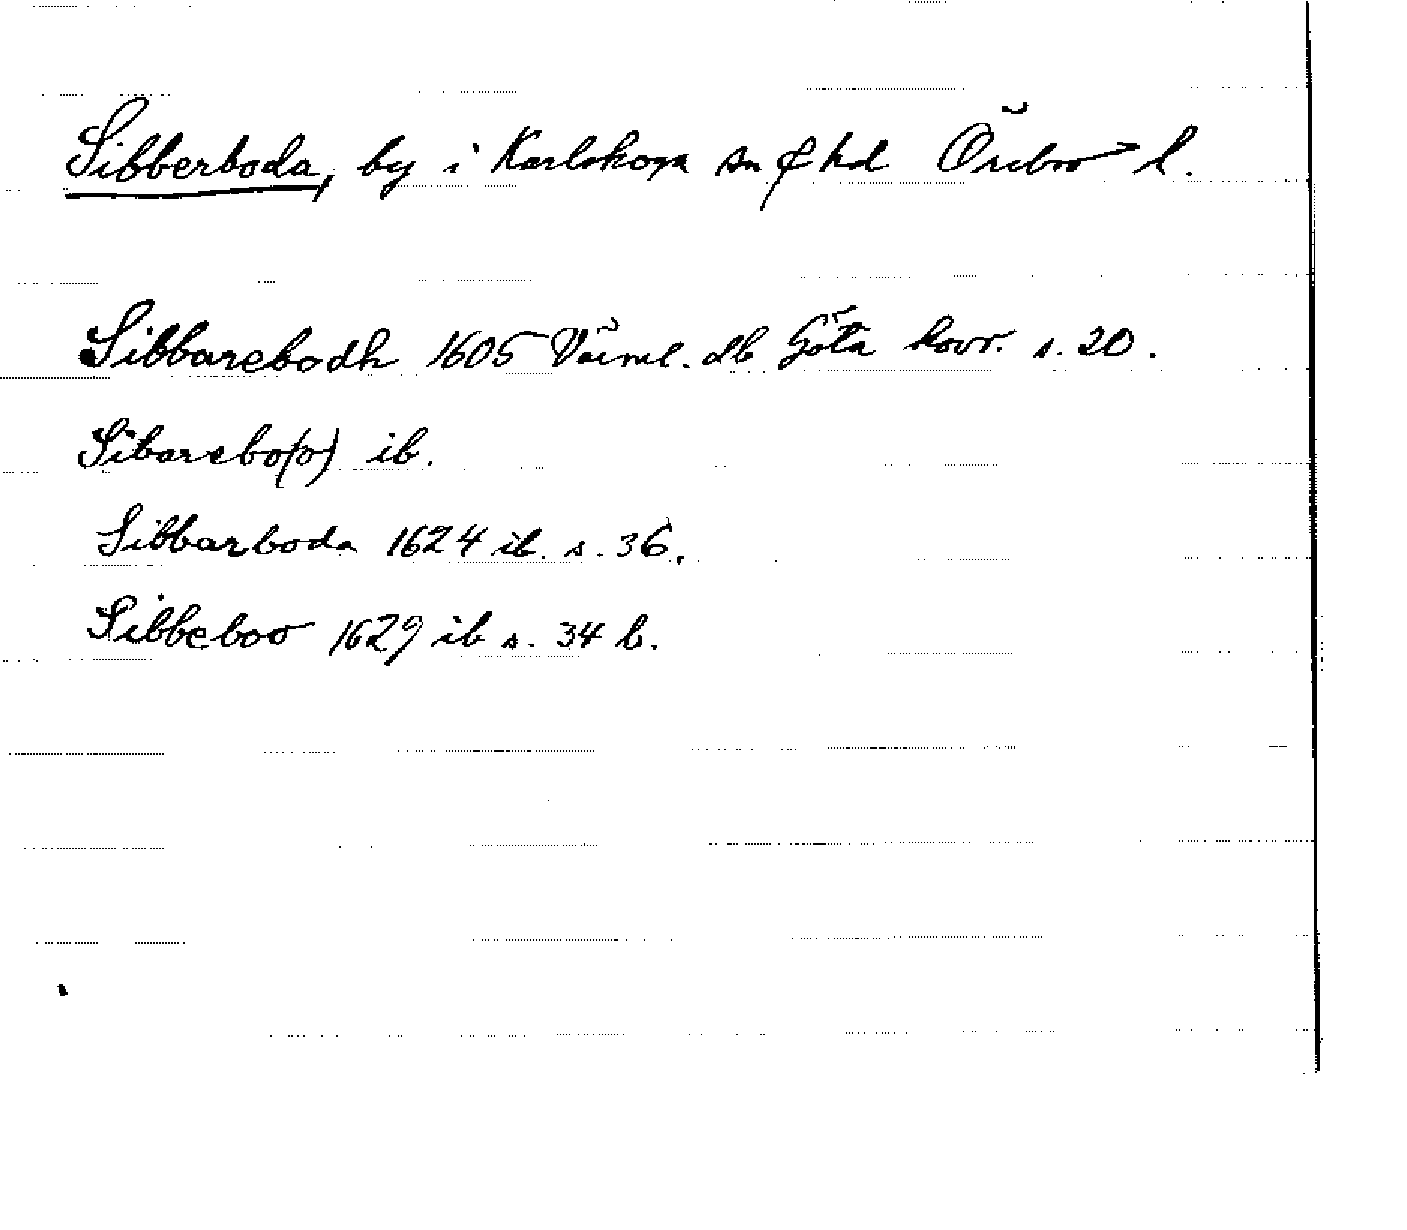 Sibberboda, by i Karlskoga sn & hd Örebro l.
Sibbarebodh 1605 Värml. db Göta hovr. s. 20.
Sibarebo(o) ib.
Sibbarboda 1624 ib. s. 36.
Sibbeboo 1629 ib s. 34 b.